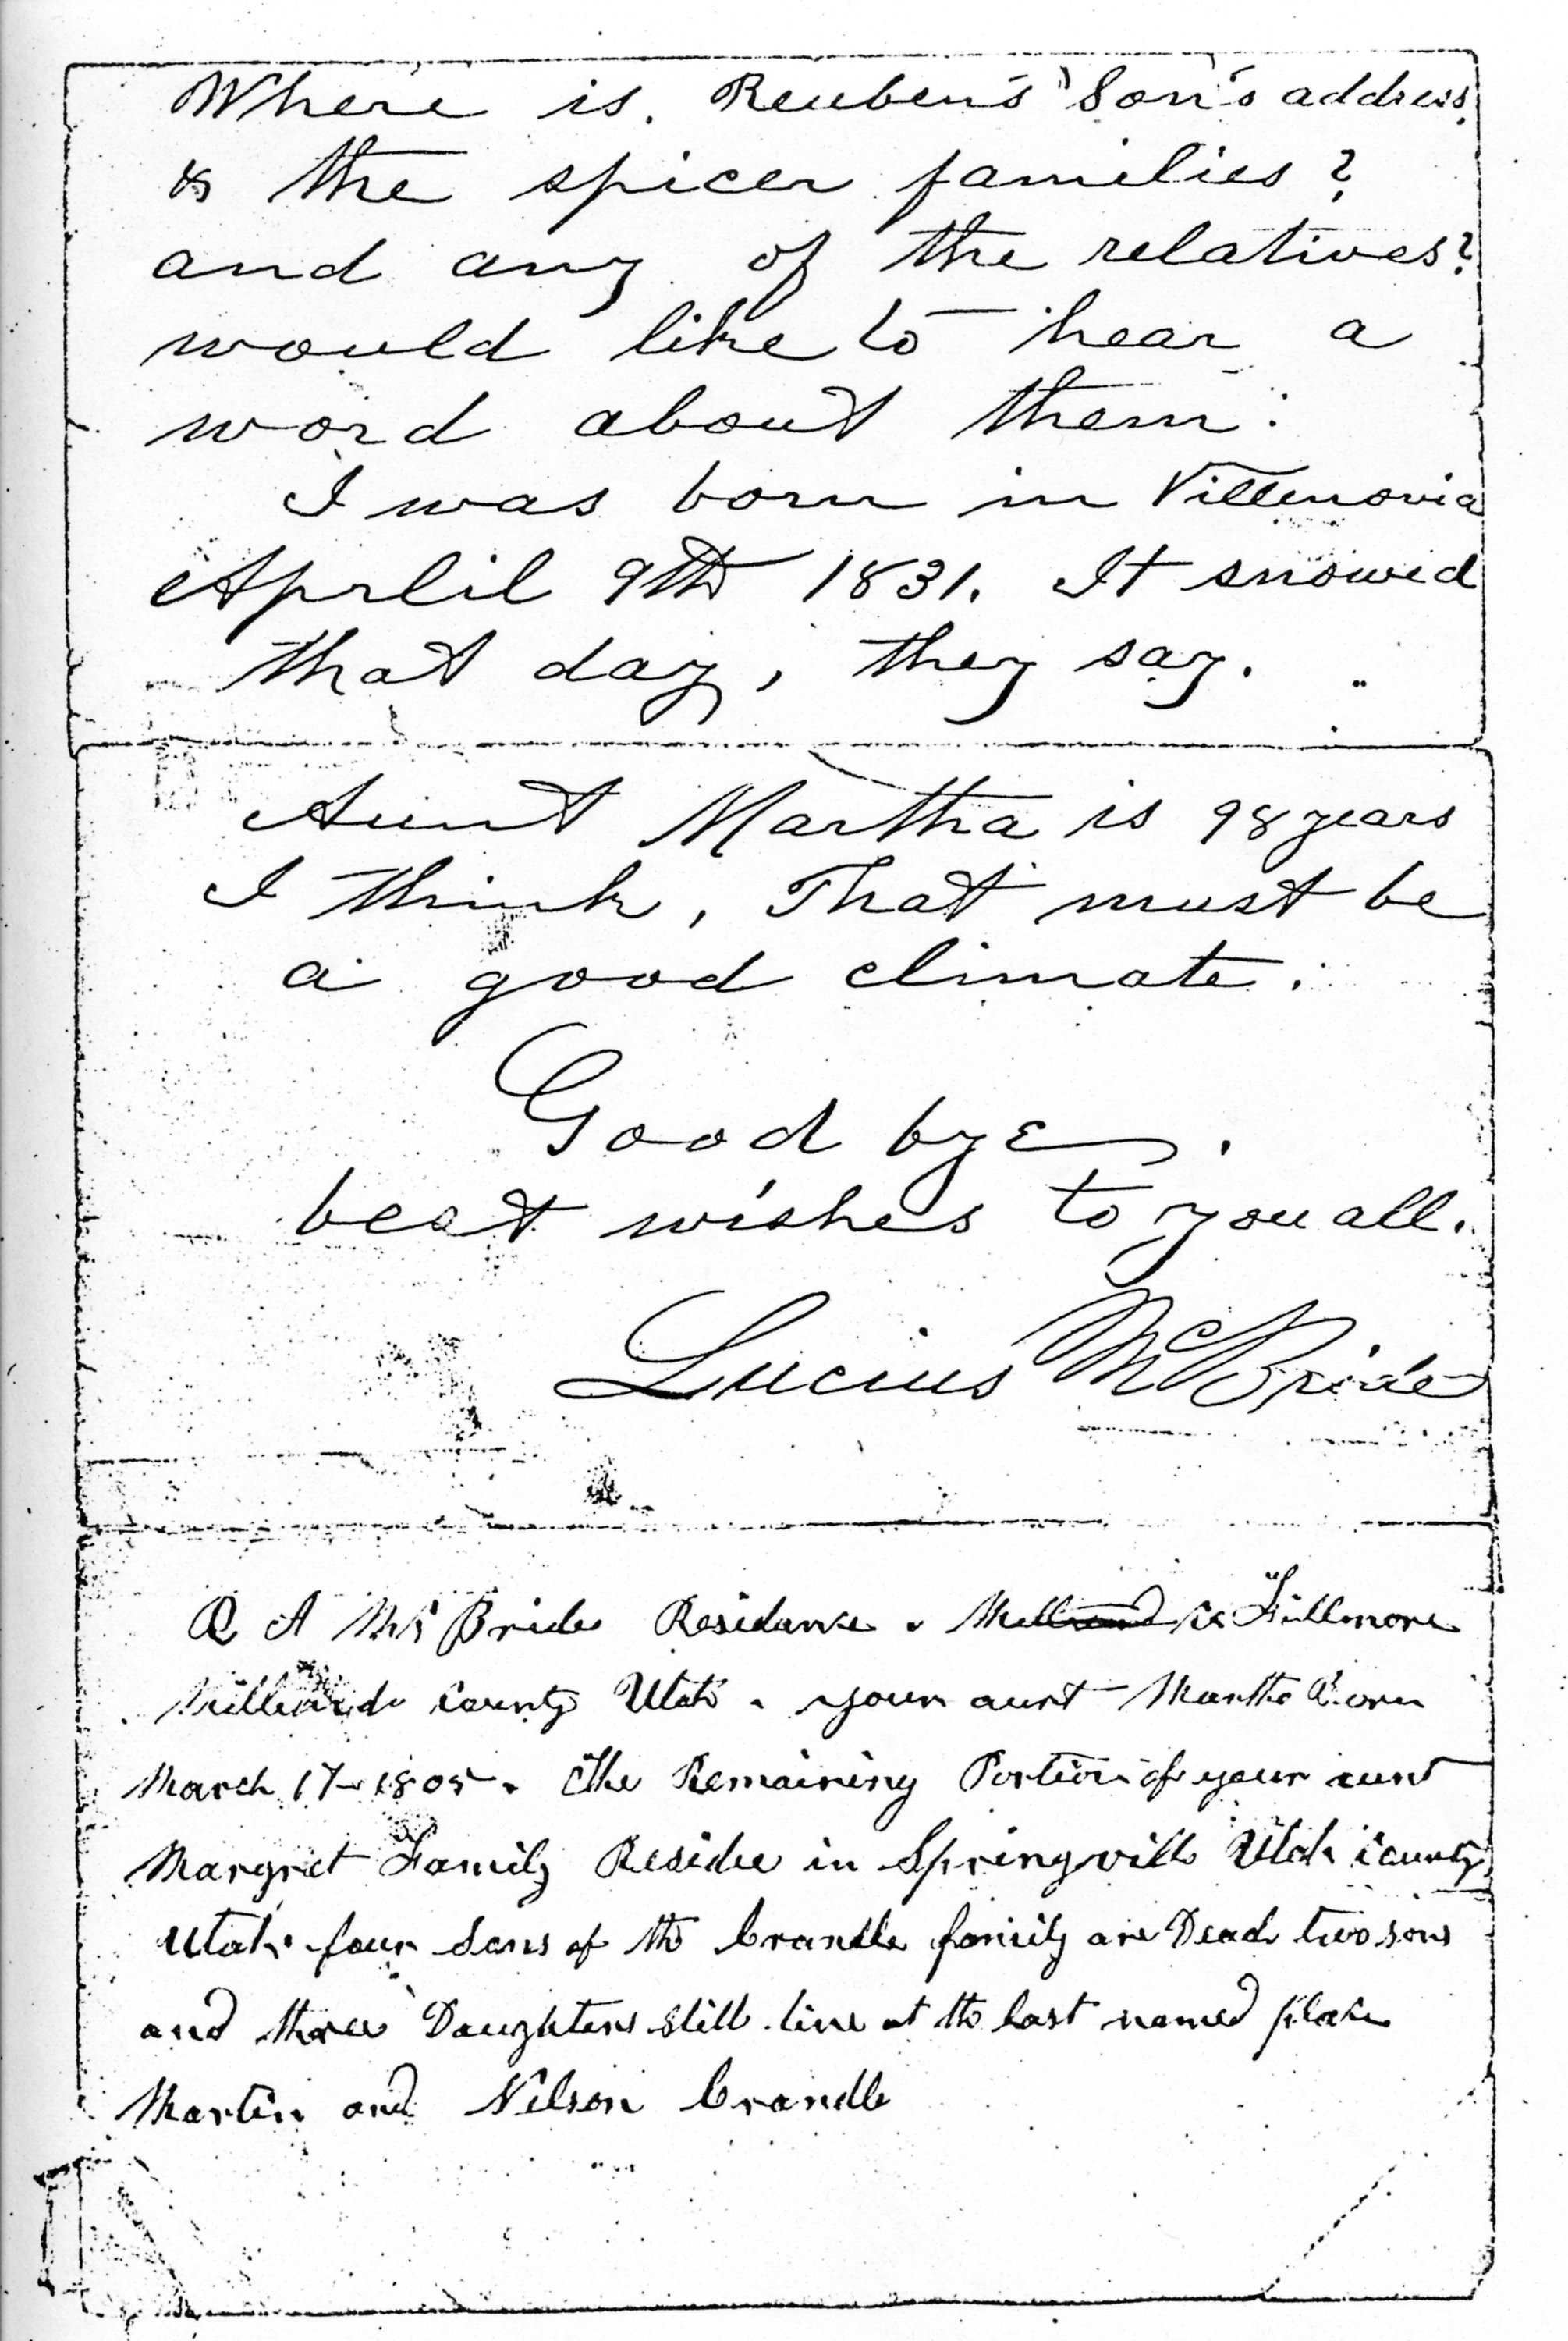 Where is. Reuben's Son's address,
& the spicer families?
and any of the relatives?
would like to hear a
word about them.
I was born in Villenovia
Aprlil 9th 1831. It snowed
that day, they say.
Aunt Martha is 98 years
I think, That must be
a good climate.
Good bye.
best wishes to you all.
Lucius McBride
R A McBride Residance. is Fillmore
Millard County Utah. your aunt Martha Born
March 17 1805. the Remaining Portion of your aunt
Margret Family Reside in Springvill Utah County
Utah four Sons of the Crandle family are Dead two sons
and three Daughters still live at the last named place
Martin and Nelson Crandle